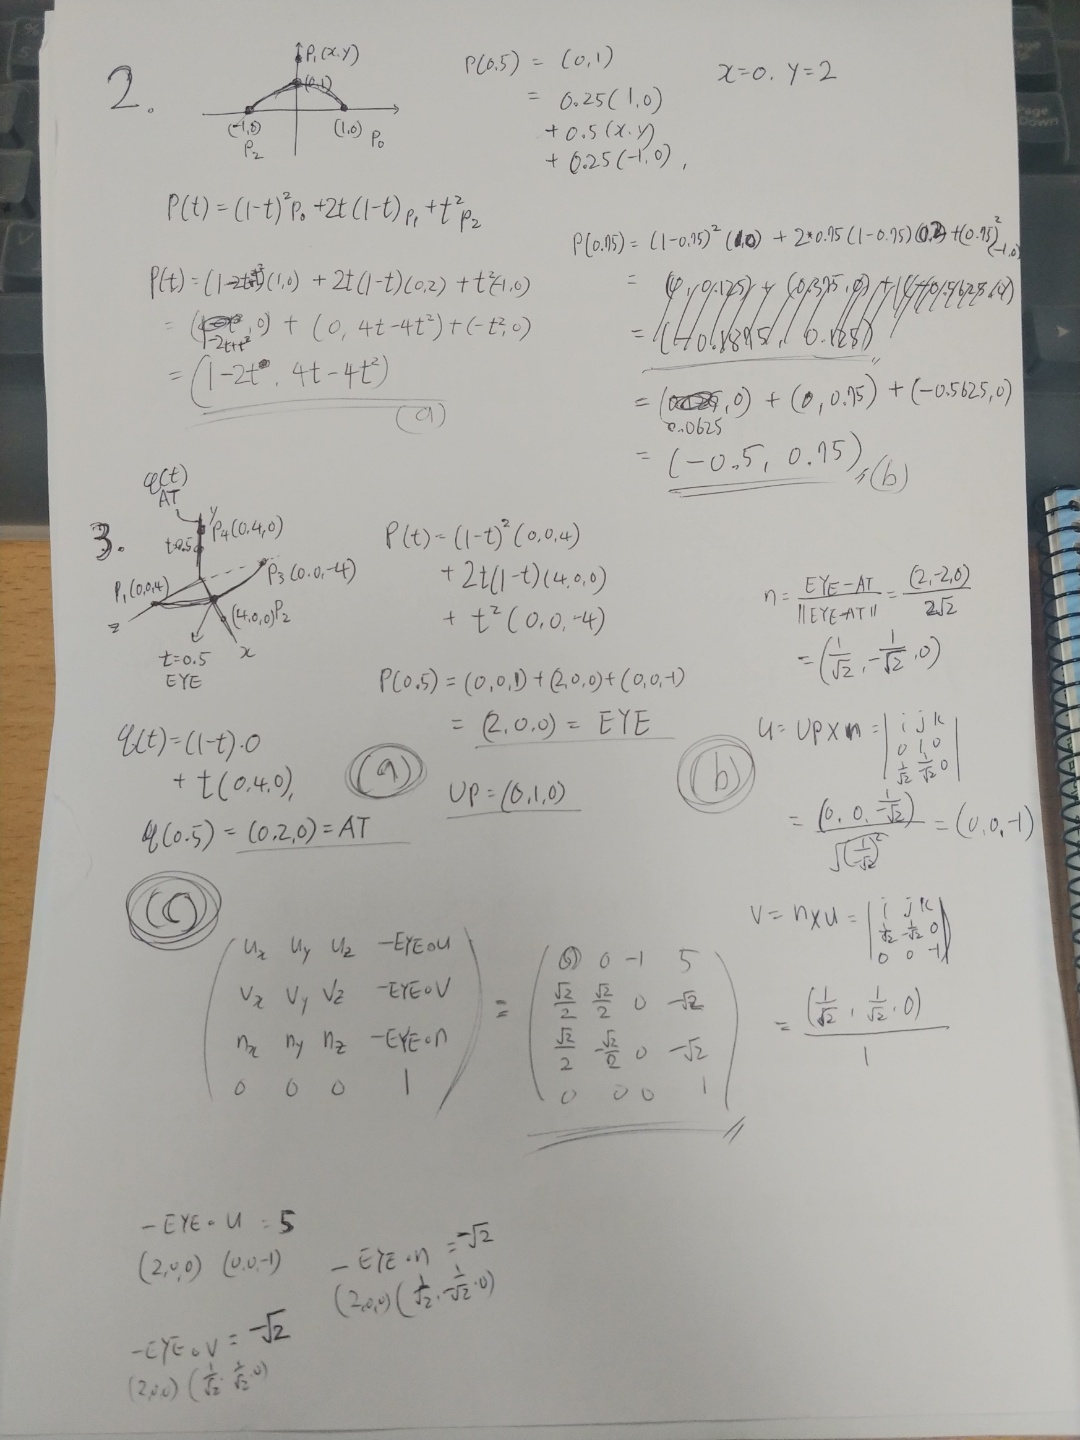 2.
P₁(x,y)
(0,1)
(-1,0)
P₂
(1,0) P₀
P(0.5) = (0,1)
= 0.25(1,0)
+ 0.5(x,y)
+ 0.25(-1,0),
x=0. y=2
P(t) = (1-t)²P₀ + 2t(1-t)P₁ + t²P₂
P(t) = (1-2t+t²)(1,0) + 2t(1-t)(0,2) + t²(-1,0)
= (1-2t+t², 0) + (0, 4t-4t²) + (-t², 0)
= (1-2t, 4t-4t²)
(a)
P(0.75) = (1-0.75)²(1,0) + 2*0.75(1-0.75)(0,2) + (0.75)²(-1,0)
= (0.0625, 0) + (0, 0.75) + (-0.5625, 0)
= (-0.5, 0.75) (b)
3.
q(t)
AT
y
P₄(0,4,0)
t=0.5
P₁(0,0,4)
P₃(0,0,-4)
(4,0,0)P₂
z
x
t=0.5
EYE
P(t) = (1-t)²(0,0,4)
+ 2t(1-t)(4,0,0)
+ t²(0,0,-4)
P(0.5) = (0,0,1) + (2,0,0) + (0,0,-1)
= (2,0,0) = EYE
q(t) = (1-t)·0
+ t(0,4,0),
q(0.5) = (0,2,0) = AT
(a)
UP = (0,1,0)
(b)
n = EYE-AT / ||EYE-AT|| = (2,-2,0) / 2√2
= (1/√2, -1/√2, 0)
u = UP×n = | i j k
0 1 0
1/√2 -1/√2 0 |
= (0, 0, -1/√2) / √(-1/√2)² = (0,0,-1)
v = n×u = | i j k
1/√2 -1/√2 0
0 0 -1 |
= (1/√2, 1/√2, 0) / 1
(c)
( uₓ u_y u_z -EYE∘u ) = ( 0 0 -1 5 )
vₓ v_y v_z -EYE∘v √2/2 √2/2 0 -√2
nₓ n_y n_z -EYE∘n √2/2 -√2/2 0 -√2
0 0 0 1 0 0 0 1
-EYE∘u = 5
(2,0,0) (0,0,-1)
-EYE∘n = -√2
(2,0,0) (1/√2, -1/√2, 0)
-EYE∘v = -√2
(2,0,0) (1/√2, 1/√2, 0)